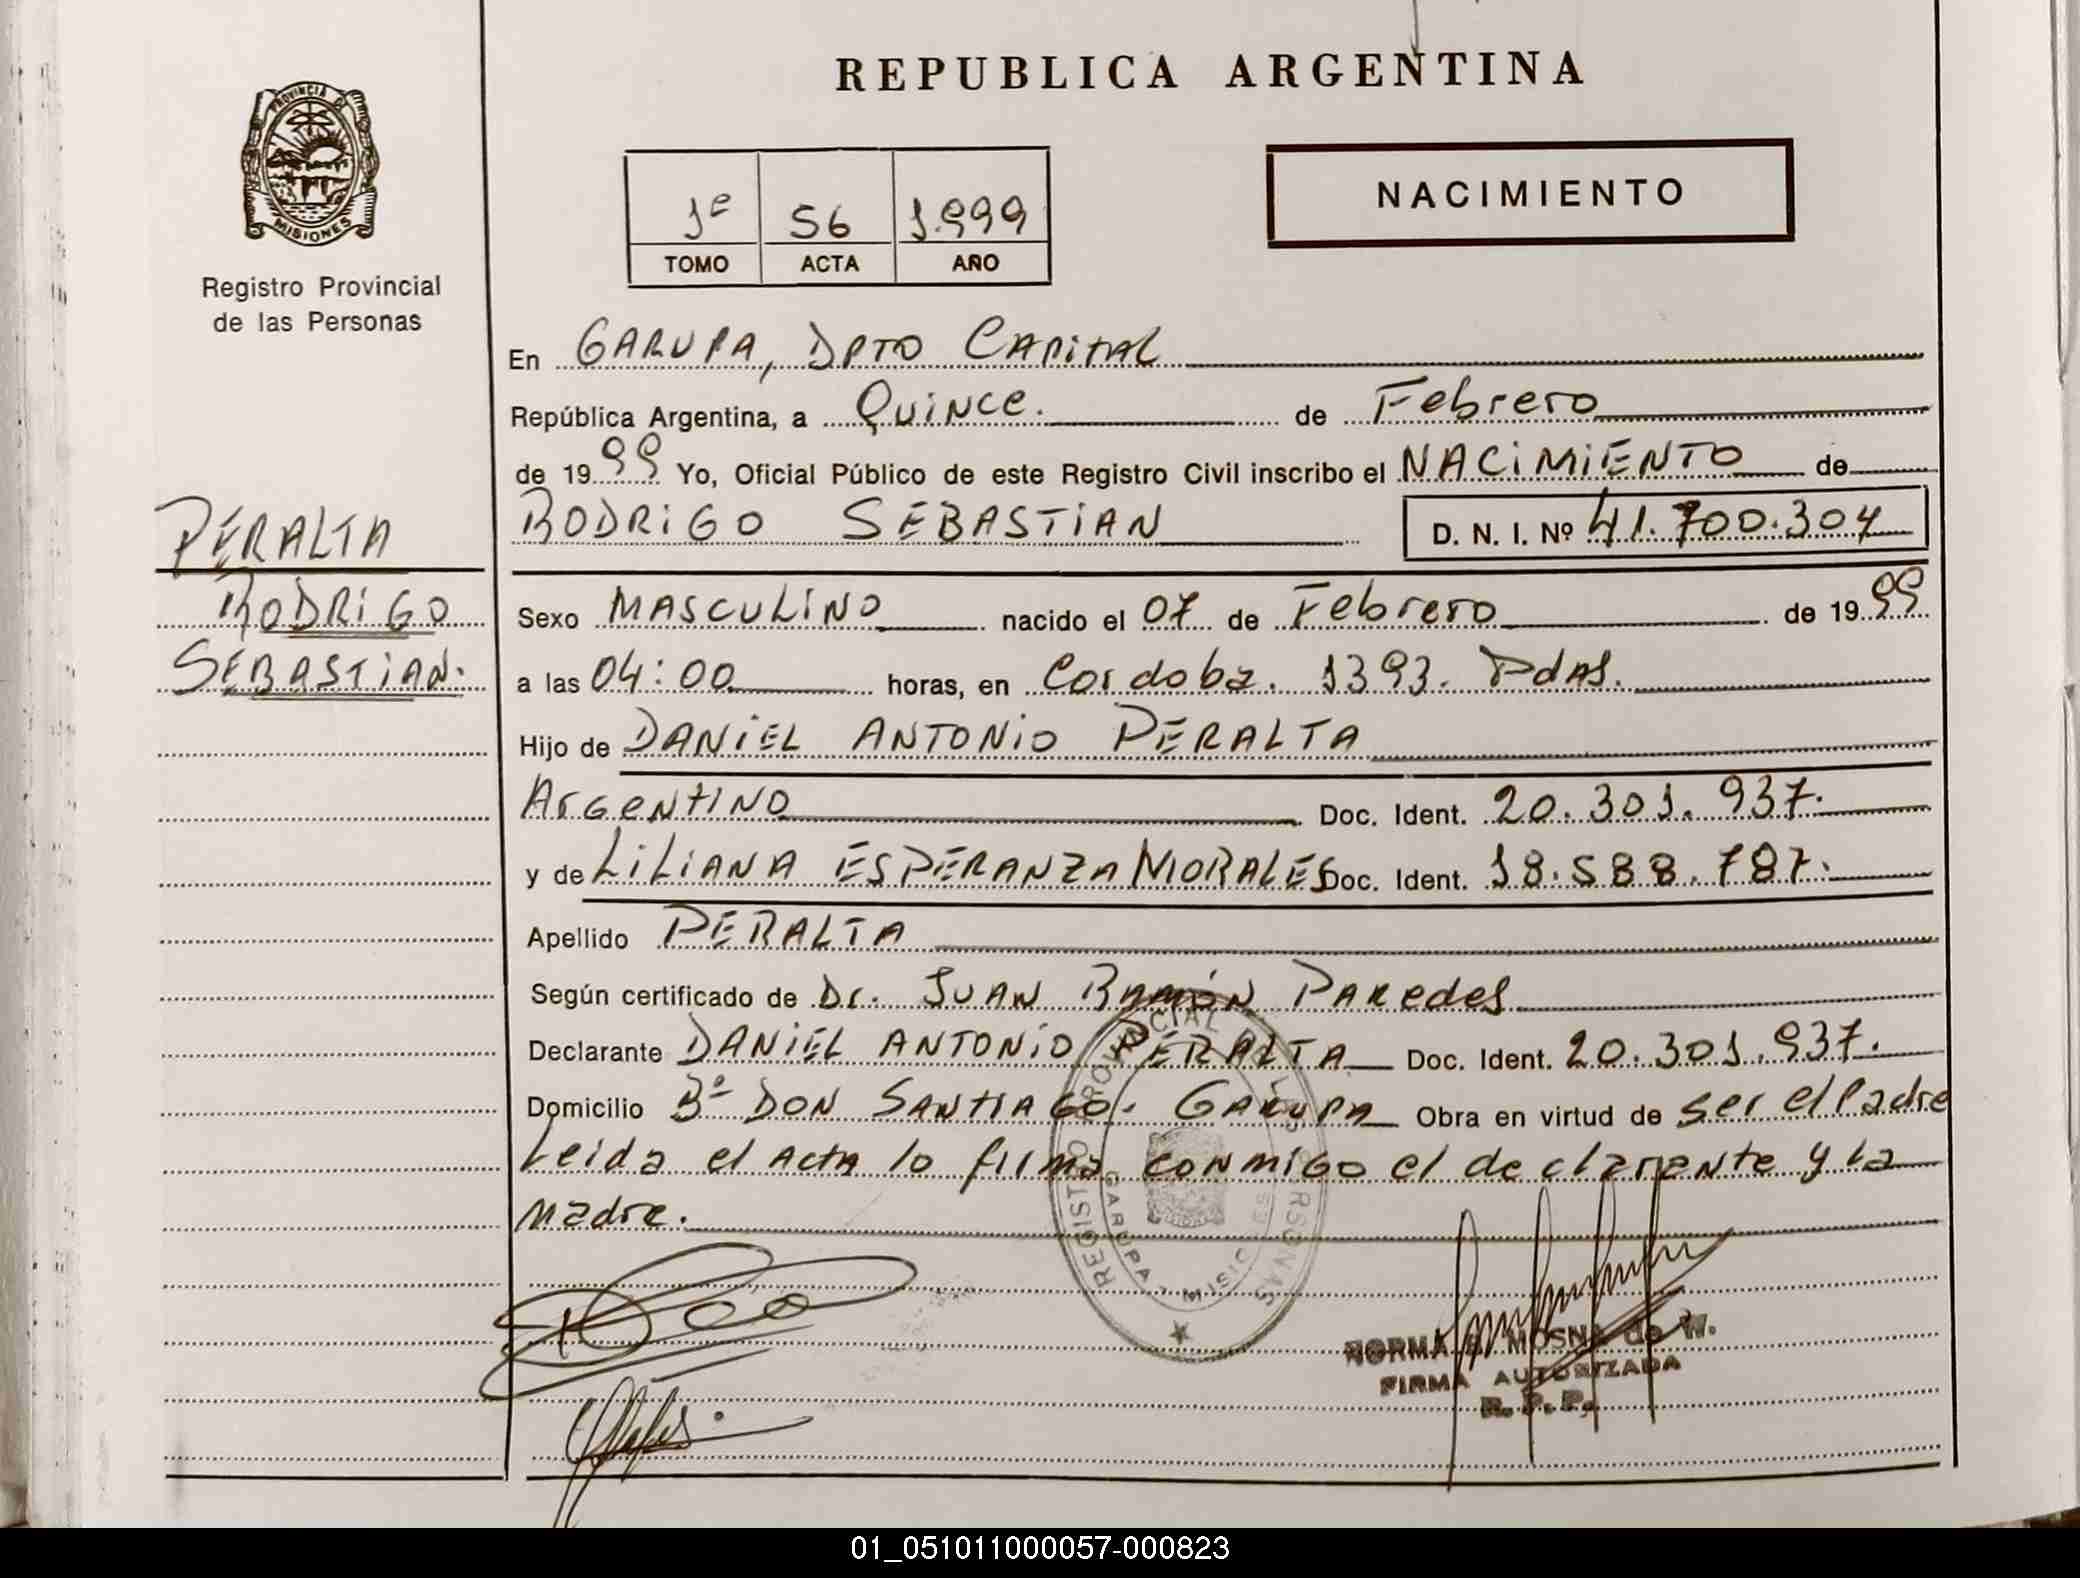 REPUBLICA ARGENTINA
PROVINCIA DE
MISIONES
Registro Provincial
de las Personas
1º 56 1.999
TOMO ACTA AÑO
NACIMIENTO
En GARUPA, DPTO CAPITAL
República Argentina, a Quince. de Febrero
de 1999 Yo, Oficial Público de este Registro Civil inscribo el NACIMIENTO de
PERALTA
RODRIGO
SEBASTIAN.
RODRIGO SEBASTIAN D. N. I. Nº 41.700.304
Sexo MASCULINO nacido el 07 de Febrero de 1999
a las 04:00 horas, en Cordoba. 1393. Pdas.
Hijo de DANIEL ANTONIO PERALTA
Argentino Doc. Ident. 20.301.937.
y de LILIANA ESPERANZA MORALES Doc. Ident. 18.588.787.
Apellido PERALTA
Según certificado de Dr. Juan Ramón Paredes
Declarante DANIEL ANTONIO PERALTA Doc. Ident. 20.301.937.
Domicilio Bº DON SANTIAGO. GARUPA Obra en virtud de ser el Padre
Leida el acta lo firma conmigo el declarante y la
madre.
REGISTRO PROVINCIAL DE LAS PERSONAS
GARUPA - MISIONES
NORMA B. MOSNA de W.
FIRMA AUTORIZADA
R. P. P.
01_051011000057-000823